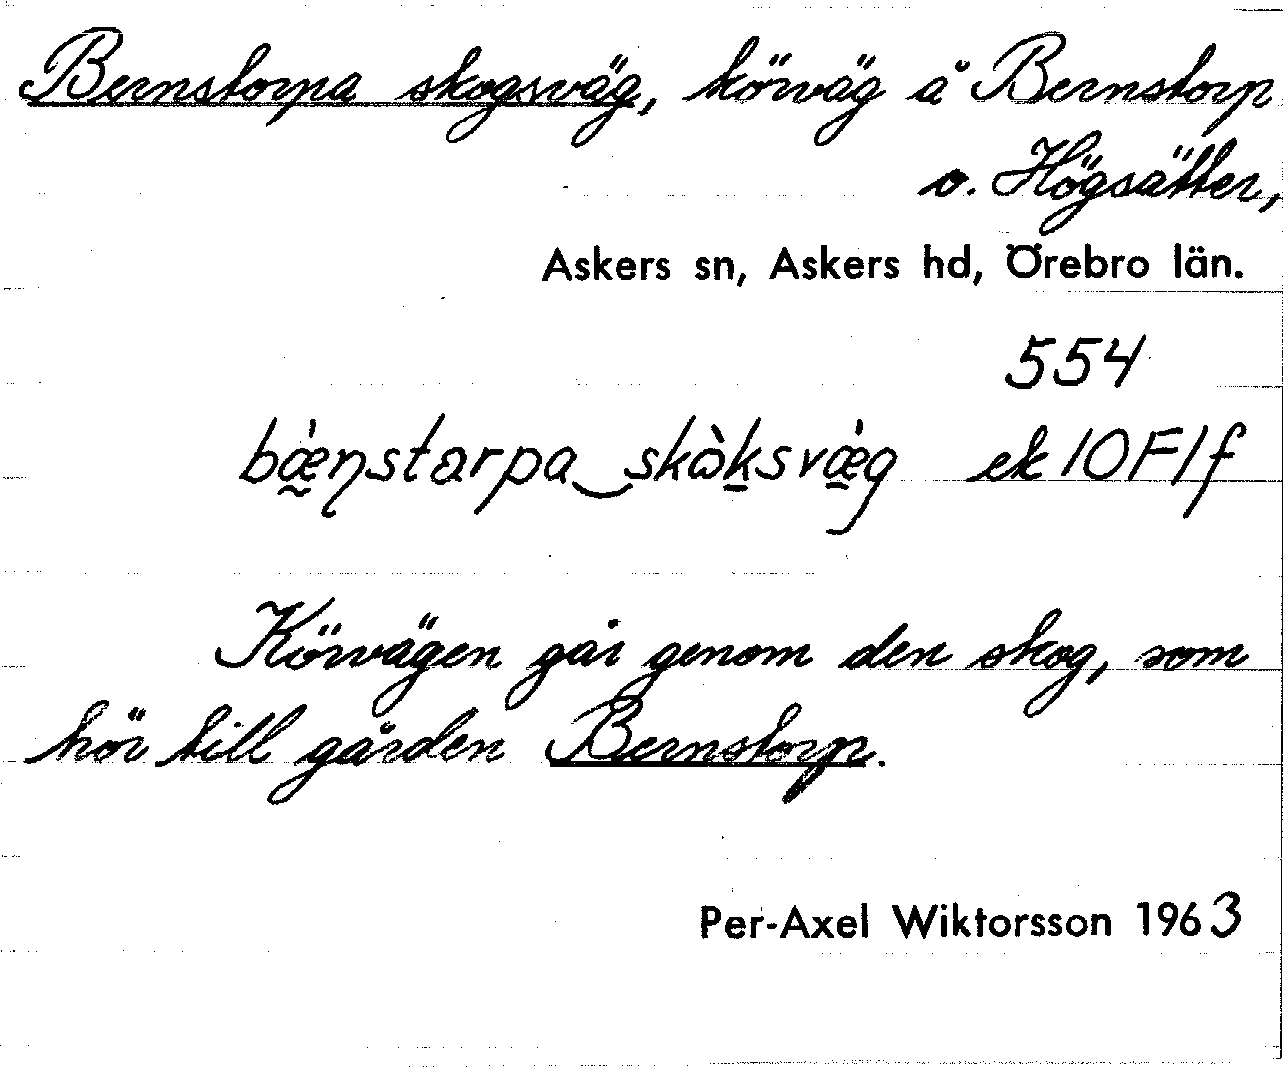 Bernstorpa skogsväg, körväg å Bernstorp
o. Högsätter,
Askers sn, Askers hd, Örebro län.
554
bæ̀ɳstarpa‿skòksvæ̀g ek 10F1f
Körvägen går genom den skog, som
hör till gården Bernstorp.
Per-Axel Wiktorsson 1963